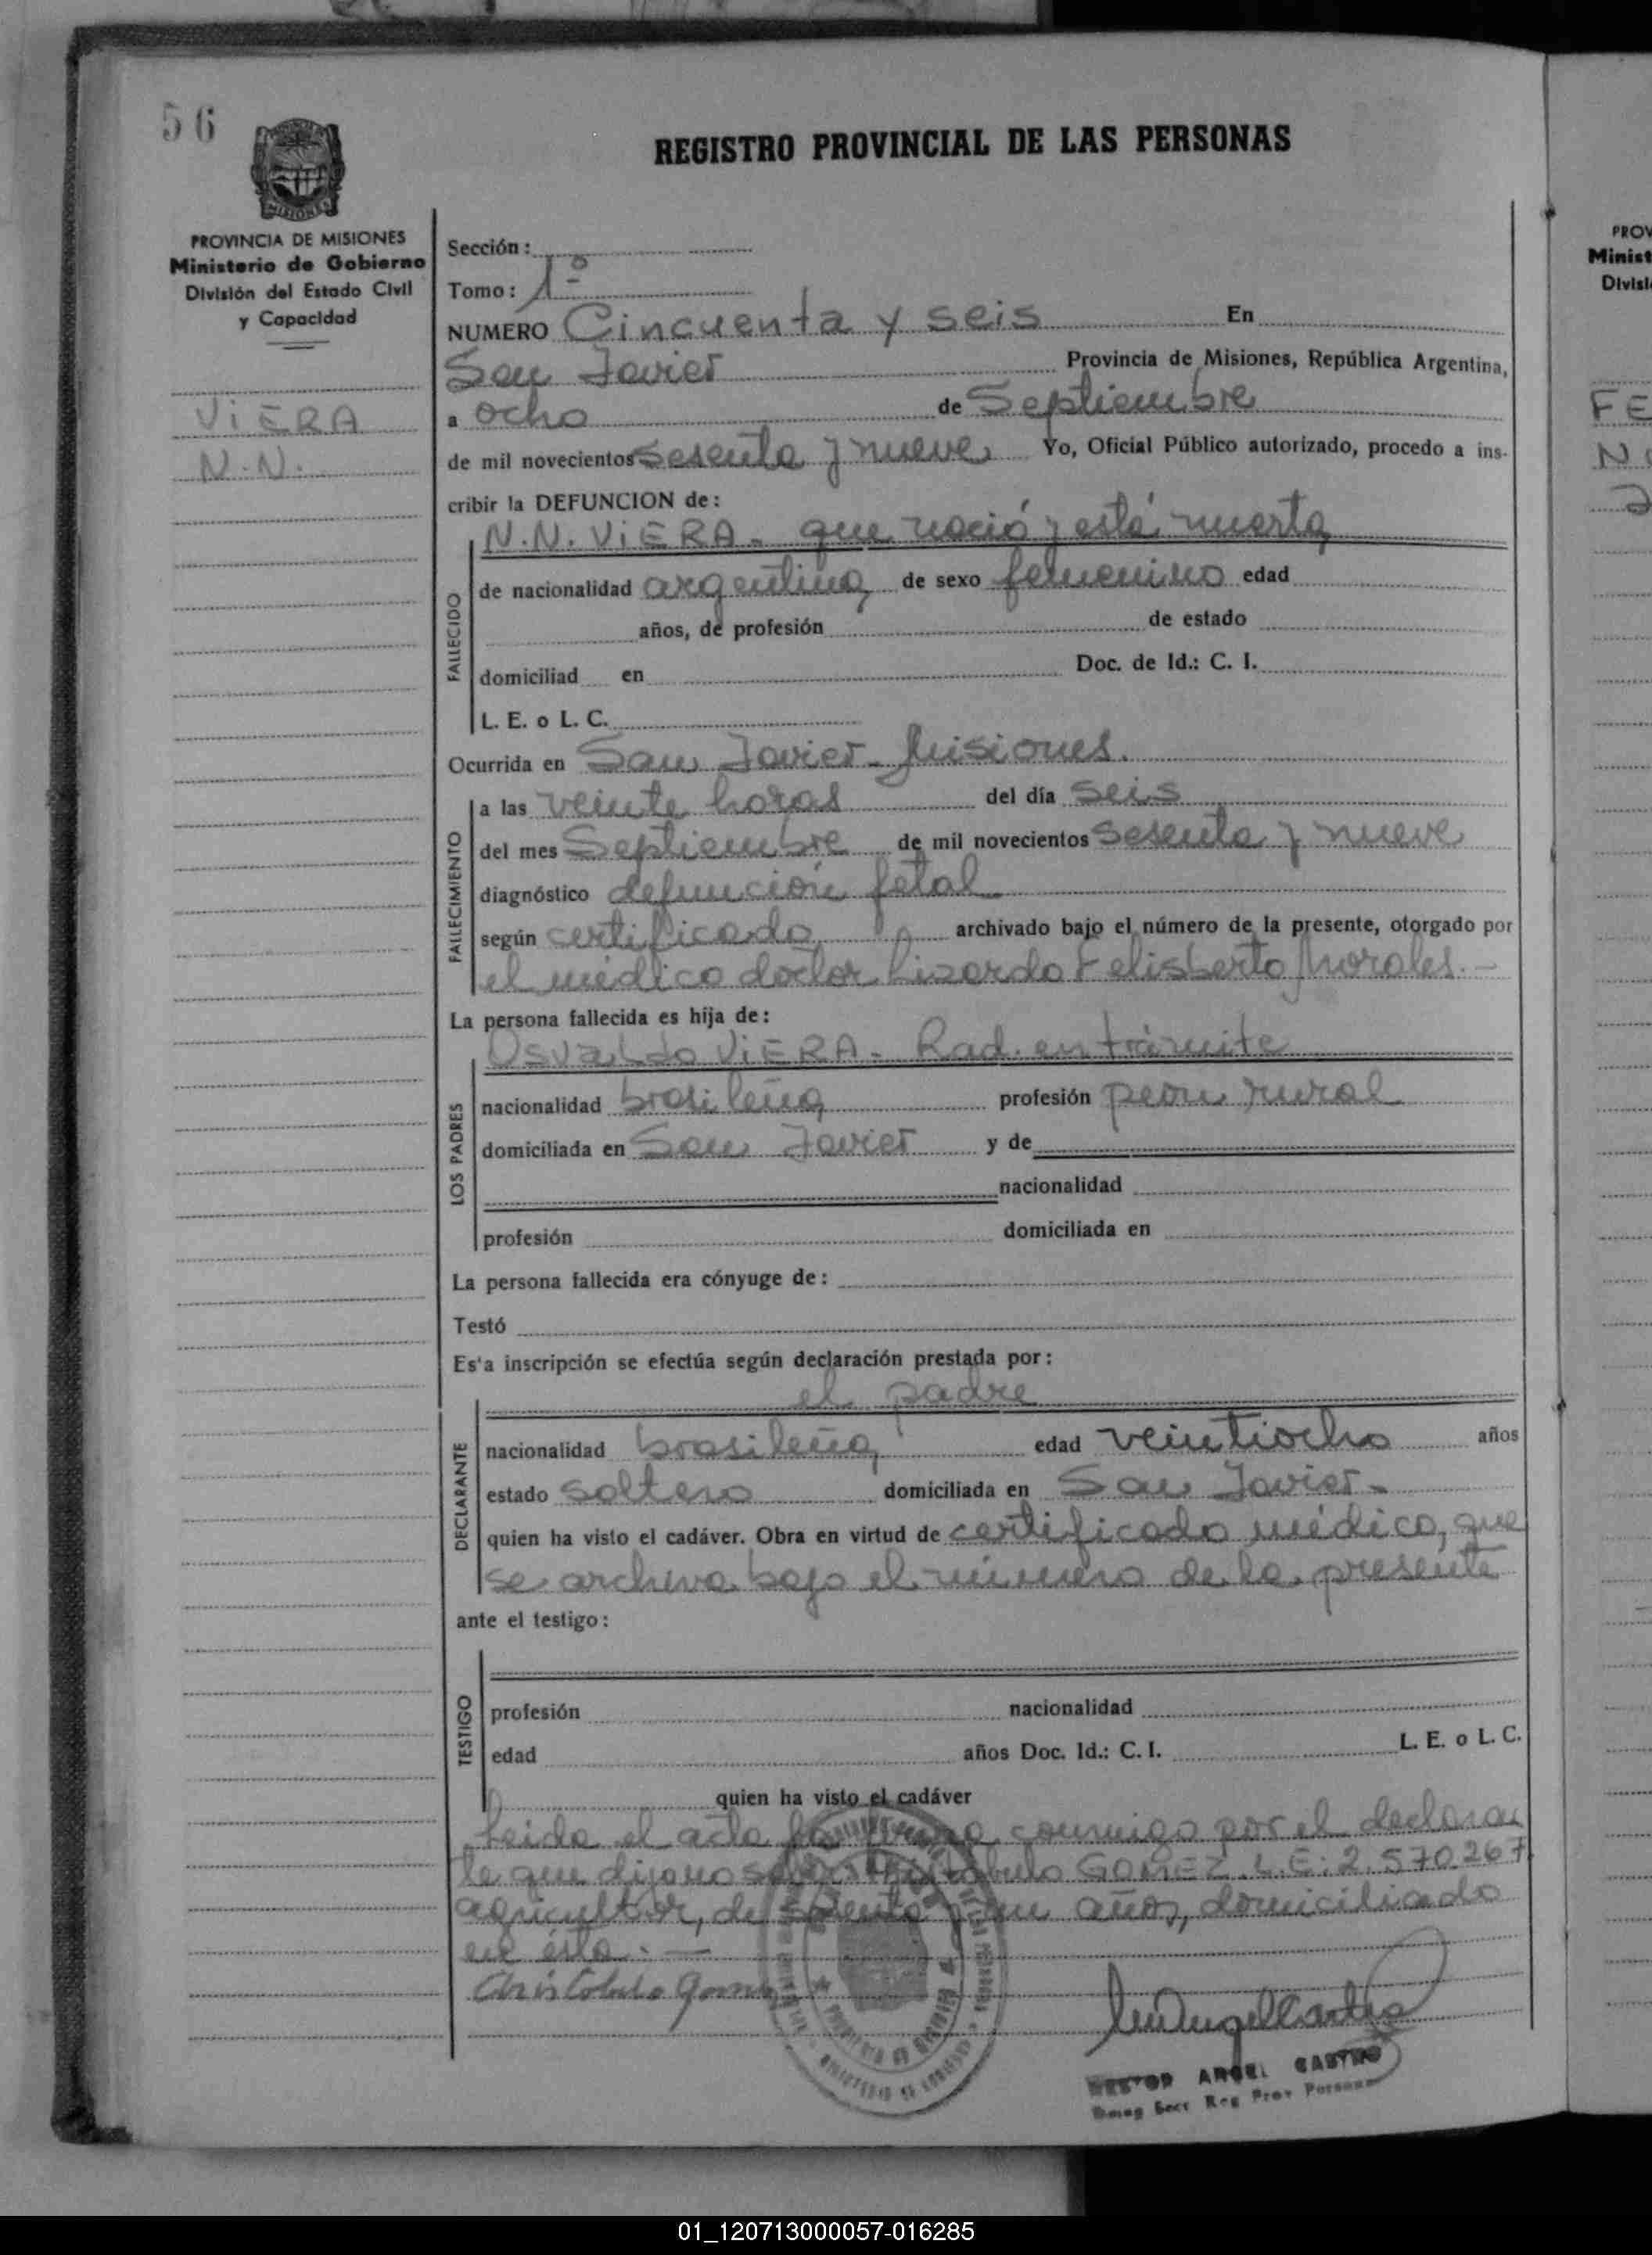 56
REGISTRO PROVINCIAL DE LAS PERSONAS
MISIONES
PROVINCIA DE MISIONES
Ministerio de Gobierno
División del Estado Civil
y Capacidad
VIERA
N.N.
Sección:
Tomo: 1º
NUMERO Cincuenta y seis En
San Javier Provincia de Misiones, República Argentina,
a ocho de Septiembre
de mil novecientos sesenta y nueve Yo, Oficial Público autorizado, procedo a ins-
cribir la DEFUNCION de:
N.N. VIERA - que nació y está muerta
FALLECIDO
de nacionalidad argentina de sexo femenino edad
años, de profesión de estado
domiciliad en Doc. de Id.: C. I.
L. E. o L. C.
Ocurrida en San Javier - Misiones.
FALLECIMIENTO
a las veinte horas del día seis
del mes Septiembre de mil novecientos sesenta y nueve
diagnóstico defunción fetal
según certificado archivado bajo el número de la presente, otorgado por
el médico doctor Lizardo Felisberto Morales. -
La persona fallecida es hija de:
LOS PADRES
Osvaldo VIERA - Rad. en trámite
nacionalidad brasileña profesión peon rural
domiciliada en San Javier y de
nacionalidad
profesión domiciliada en
La persona fallecida era cónyuge de:
Testó
Es'a inscripción se efectúa según declaración prestada por:
el padre
DECLARANTE
nacionalidad brasileña edad veintiocho años
estado soltero domiciliada en San Javier -
quien ha visto el cadáver. Obra en virtud de certificado médico, que
se archiva bajo el número de la presente
ante el testigo:
TESTIGO
profesión nacionalidad
edad años Doc. Id.: C. I. L. E. o L. C.
quien ha visto el cadáver
Leida el acta la firma conmigo por el declaran
te que dijo no GOMEZ L.E: 2.570.267
agricultor, de sesenta y un años, domiciliado
en ésta. -
NESTOR ANGEL CASTRO
Secc Reg Prov Personas
PROV
Minist
Divisi
FE
N
01_120713000057-016285